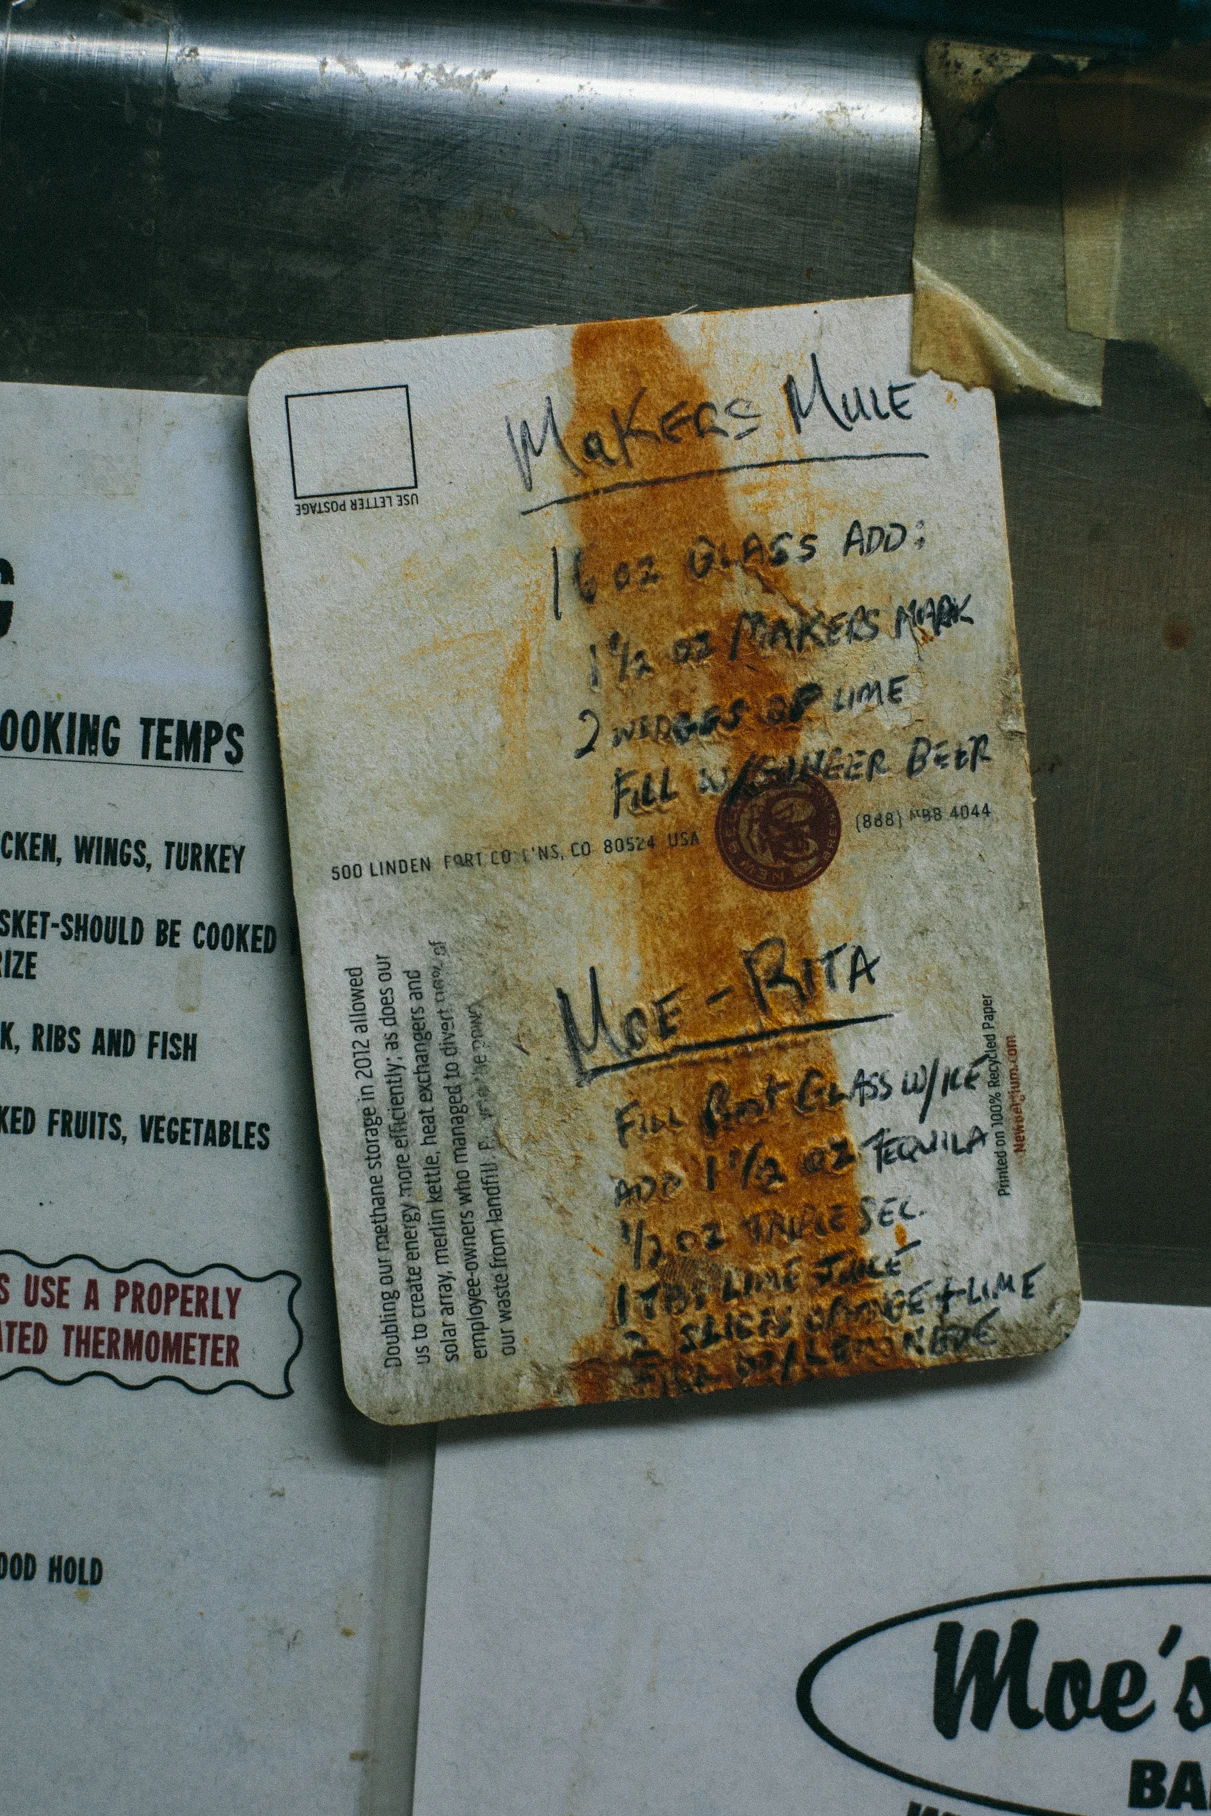 Makers Mule
16 oz GLASS ADD:
1 1/2 oz MAKERS MARK
2 WEDGES OF LIME
FILL W/GINGER BEER
500 LINDEN FORT COLLINS, CO 80524 USA
(888) 4044
MOE-RITA
FILL Pint GLASS W/ICE
ADD 1 1/2 oz TEQUILA
1/2 oz TRIPLE SEC.
1 TBS LIME JUICE
2 SLICES ORANGE + LIME
FILL W/LEMONADE
USE LETTER POSTAGE
Doubling our methane storage in 2012 allowed
us to create energy more efficiently; as does our
solar array, merlin kettle, heat exchangers and
employee-owners who managed to divert of
our waste from landfill.
Printed on 100% Recycled Paper
Newbelgium.com
NEW BELGIUM
OOKING TEMPS
CKEN, WINGS, TURKEY
SKET-SHOULD BE COOKED
RIZE
K, RIBS AND FISH
KED FRUITS, VEGETABLES
S USE A PROPERLY
ATED THERMOMETER
OOD HOLD
Moe's
BA